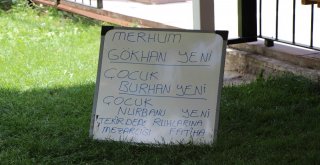 MERHUM
GÖKHAN YENİ
ÇOCUK
BURHAN YENİ
ÇOCUK
NURBANU YENİ
RUHLARINA
FATİHA